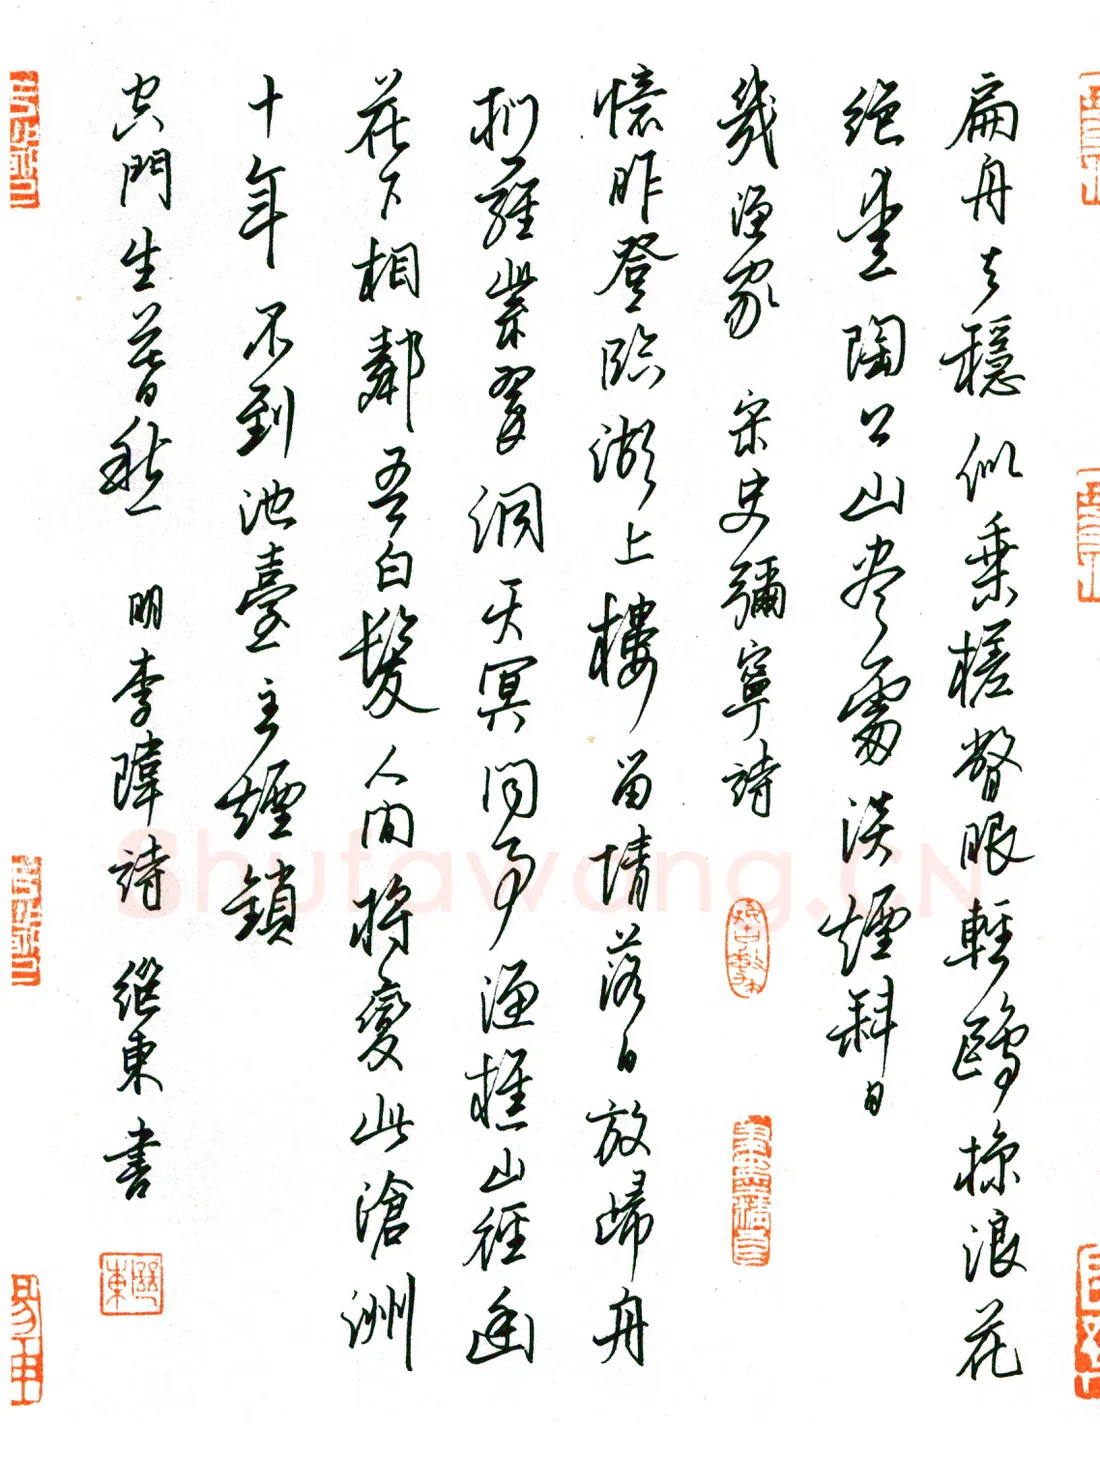 扁舟去穩似乘槎瞥眼輕鷗掠浪花
絕愛陶公山盡處淡煙斜日
幾漁家 宋史彌寧詩
憶昨登臨湖上樓留情落日放歸舟
捫蘿紫翠洞天冥問事漁樵山徑幽
花下相鄰吾白髮人間將變此滄洲
十年不到池臺主煙鎖
空門生暮愁 明李暐詩 继東書
继東
Shufawang.CN